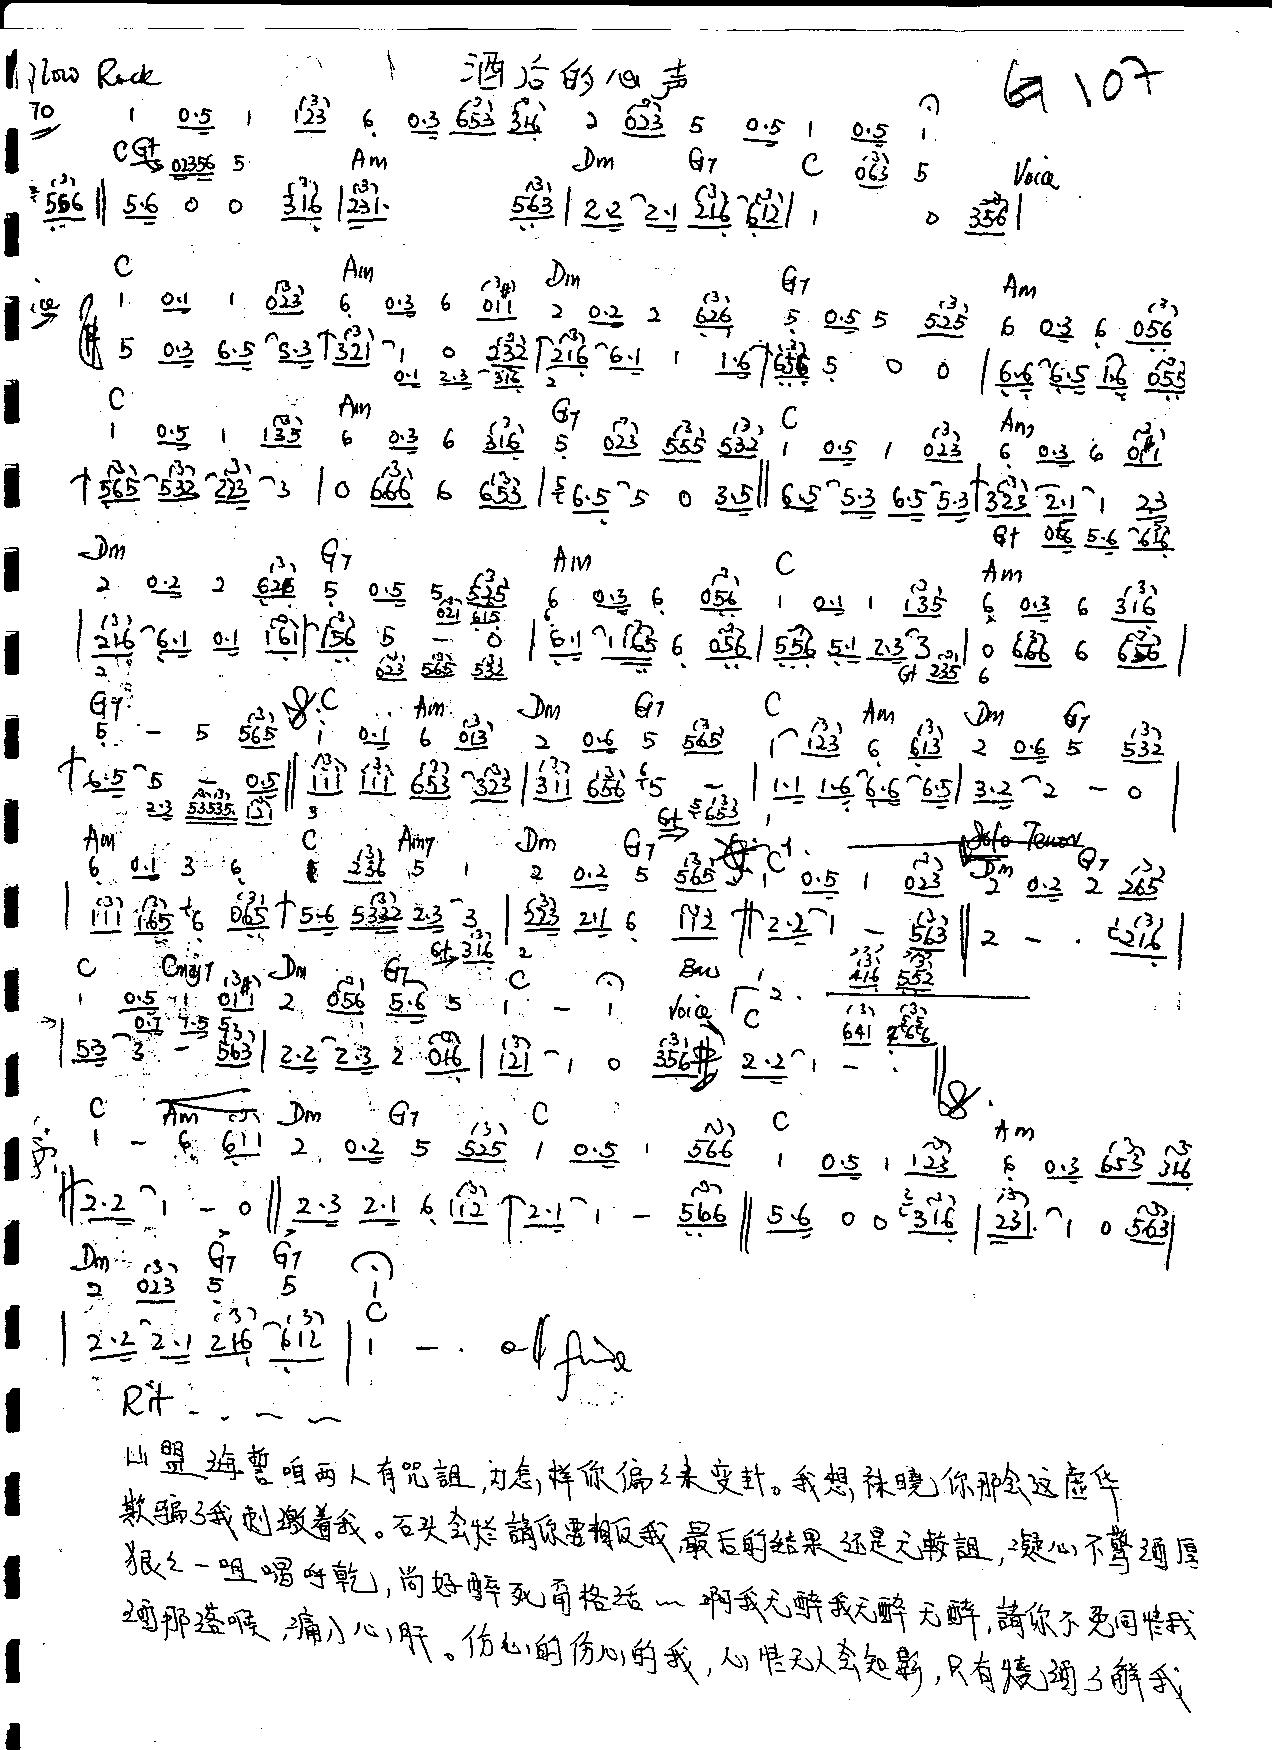 Slow Rock 酒后的心声 G 107
70 1 0.5 1 123 6 0.3 653 316 2 023 5 0.5 1 0.5 1
C Gt 02356 5 Am Dm G7 C 063 5 Voice
556 || 5.6 0 0 316 | 231. 563 | 2.2 2.1 216 612 | 1 0 356 |
C Am Dm G7 Am
1 0.1 1 023 6 0.3 6 011 2 0.2 2 626 5 0.5 5 525 6 0.3 6 056
5 0.3 6.5 5.3 321 1 0 232 216 6.1 1 1.6 656 5 0 0 | 6.6 6.5 1.6 055
0.1 2.3 316 2
C Am G7 C Am
1 0.5 1 135 6 0.3 6 316 5 023 555 532 1 0.5 1 023 6 0.3 6 011
565 532 223 3 | 0 666 6 653 | 6.5 5 0 3.5 || 6.5 5.3 6.5 5.3 323 2.1 1 23
Gt 056 5.6 616
Dm G7 Am C Am
2 0.2 2 626 5 0.5 5 525 6 0.3 6 056 1 0.1 1 135 6 0.3 6 316
021 615
216 6.1 0.1 161 156 5 - 0 | 6.1 1165 6 056 | 556 5.1 2.3 3 | 0 666 6 656 |
2 623 565 532 Gt 235 6
G7 C Am Dm G7 C Am Dm G7
5 - 5 565 1 0.1 6 013 2 0.6 5 565 1 123 6 613 2 0.6 5 532
6.5 5 - 0.5 || 111 111 653 323 | 311 656 5 - | 1.1 1.6 6.6 6.5 | 3.2 2 - 0 |
2.3 53535 131 3 Gt 653
Am C Am7 Dm G7 C Solo Tenor Dm G7
6 0.1 3 6 236 5 1 2 0.2 5 565 1 0.5 1 023 2 0.2 2 265
| 111 165 6 065 5.6 5322 2.3 3 | 523 2.1 6 112 2.2 1 - 563 || 2 - . 216 |
Gt 316 2 416 552
C Cmaj7 Dm G7 C Bas 1 2.
1 0.5 1 011 2 056 5.6 5 1 - 1 Voice C
0.7 7.5 53 641
| 53 3 - 563 | 2.2 2.3 2 016 | 121 1 0 356 2.2 1 - .
C Am Dm G7 C C Am
1 - 6 611 2 0.2 5 525 1 0.5 1 566 1 0.5 1 123 6 0.3 653 316
2.2 1 - 0 || 2.3 2.1 6 112 2.1 1 - 566 || 5.6 0 0 316 | 231. 1 0 563 |
Dm G7 G7
2 023 5 5 1
C
| 2.2 2.1 216 612 | 1 - . 0 || fine
Rit
山盟海誓咱两人有咒詛,为怎样你偏偏来变卦。我想袜晓你那会这虚华
欺骗了我刺激着我。石头会烂請你要相信我,最后的结果还是无較詛,凝心不惊酒厚
狠狠一咀喝呼乾,尚好醉死甭格活～啊我无醉我无醉无醉,請你不免同情我
酒那落喉,痛入心肝。伤心的伤心的我,心情无人会知影,只有燒酒了解我